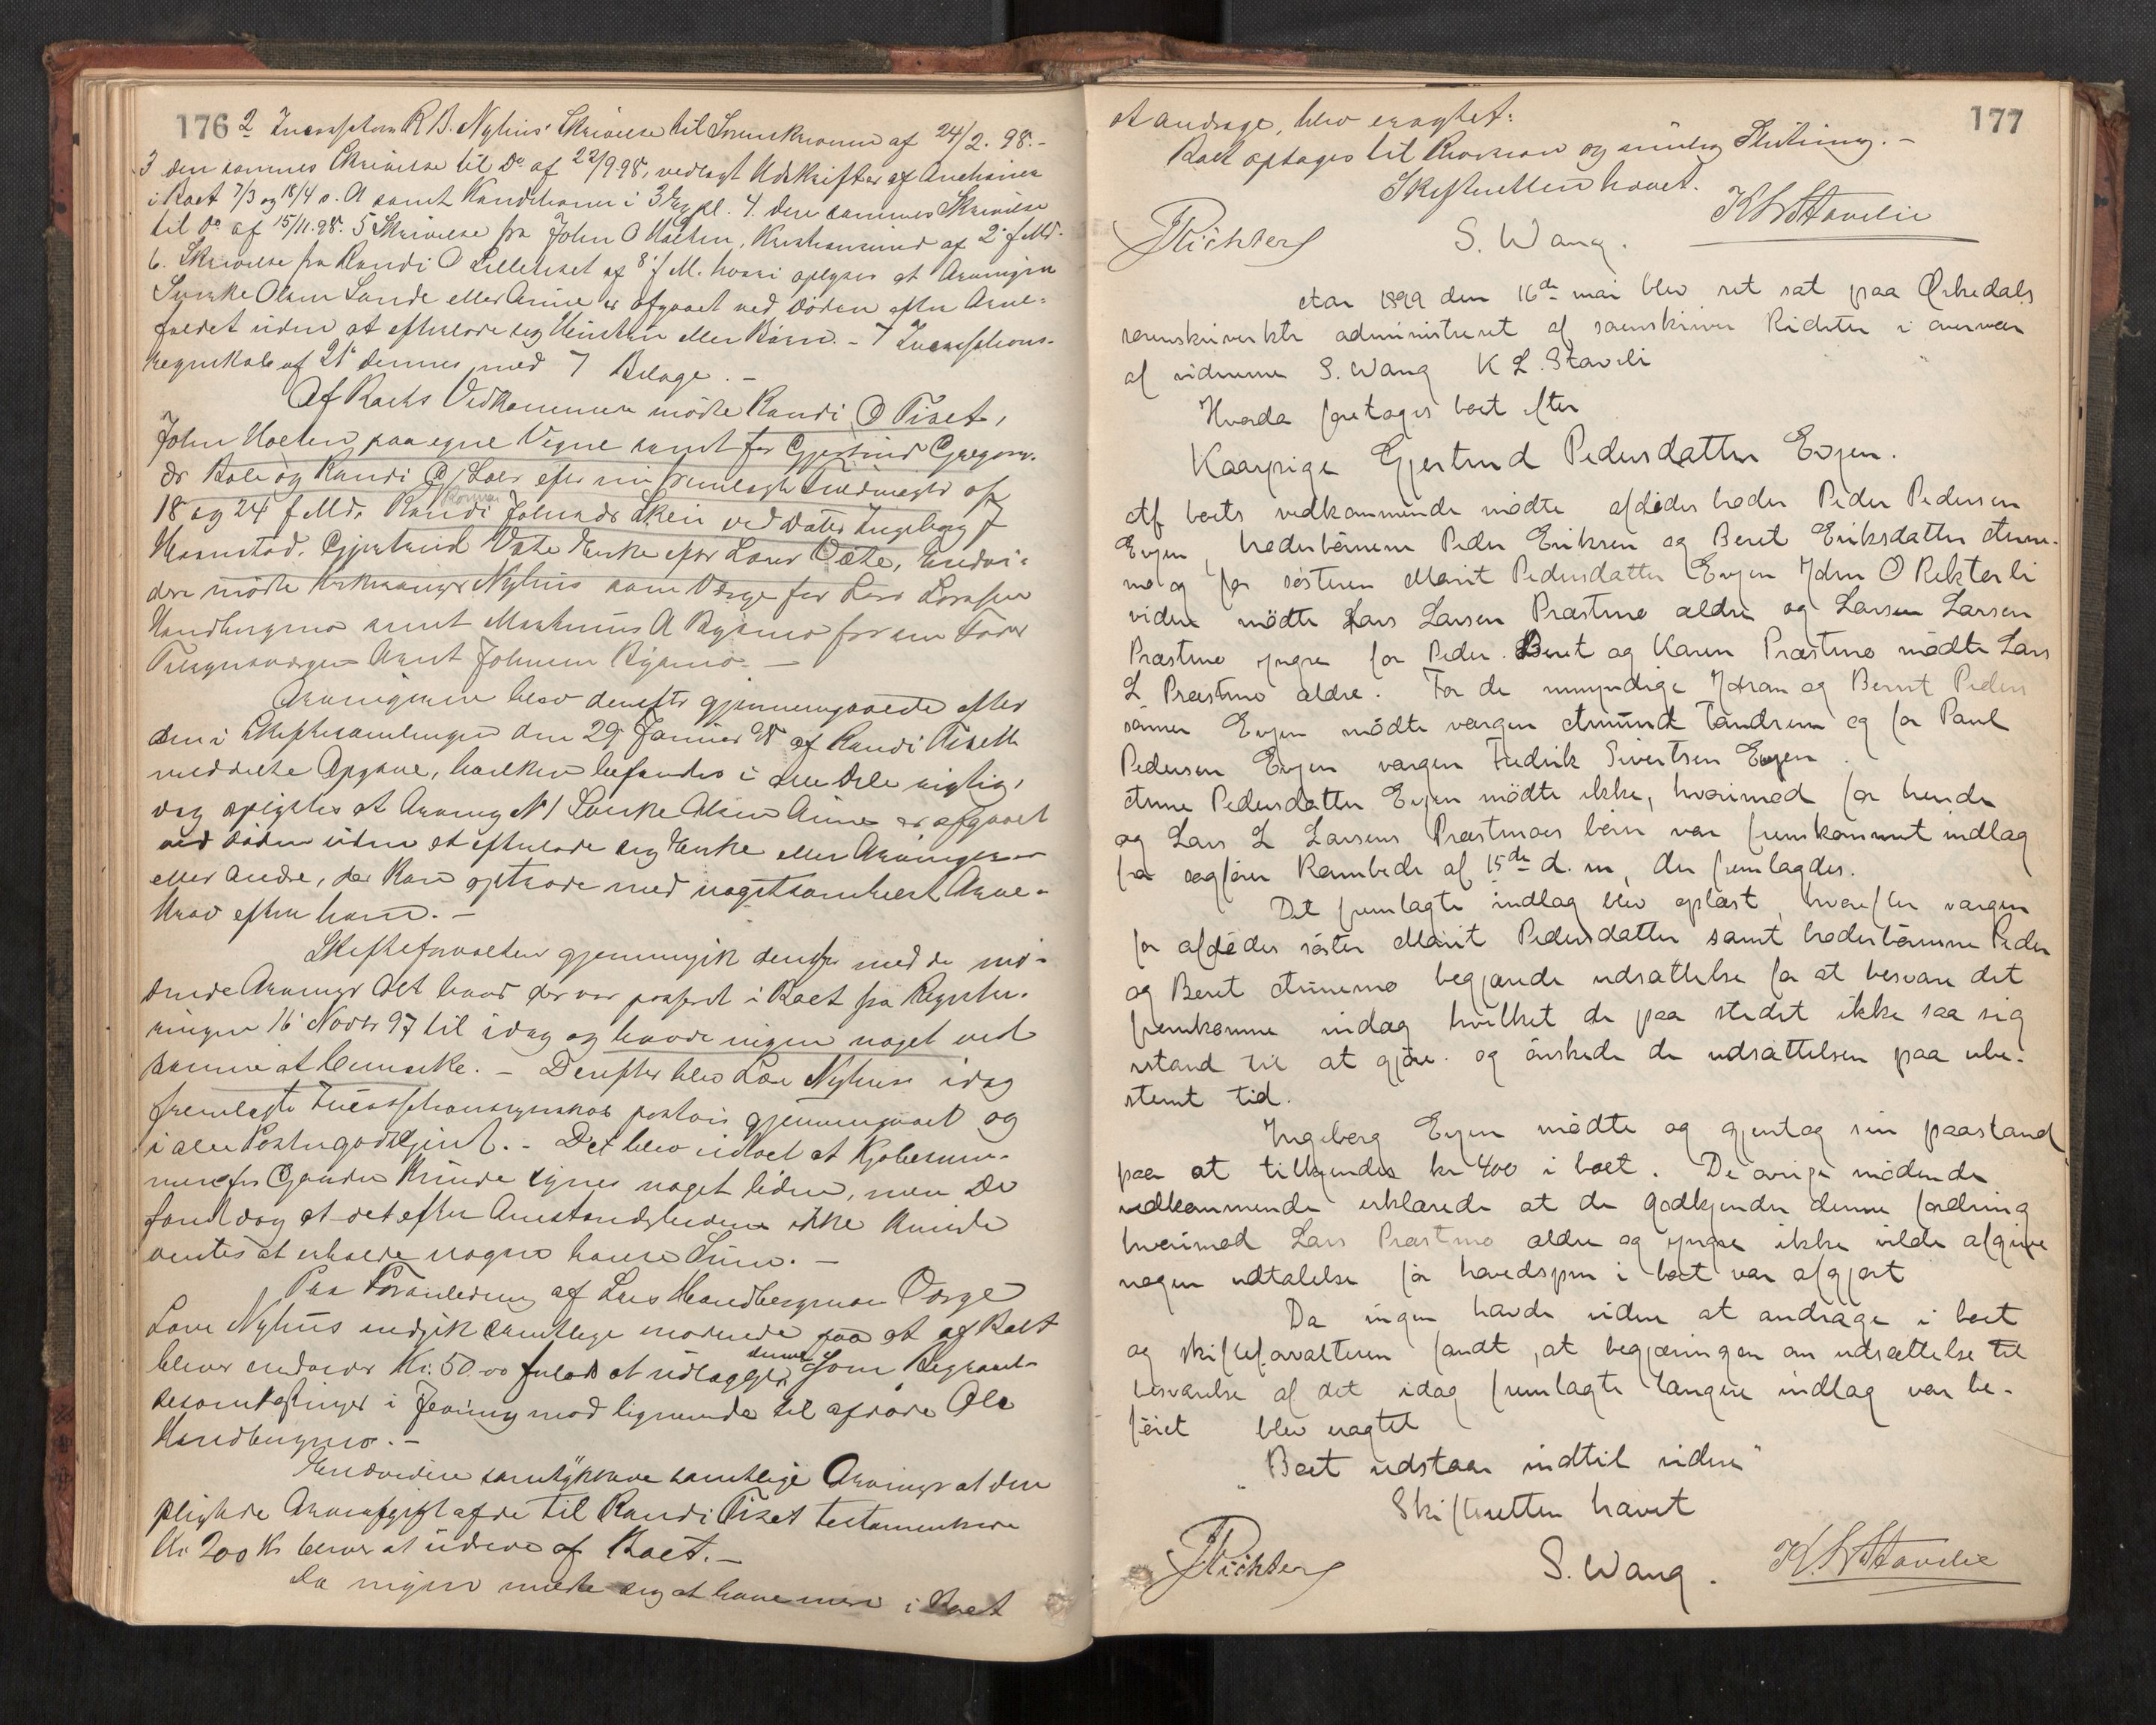 176
2 Incassator R B. Nyhus' Skrivelse til Sorenskriveren af 24/2. 98. -
3 den sammes Skrivelse til Do af 22/9 98, vedlagt Udskrifter af Auctioner
i Boet 7/3 og 18/4 s. A samt Konditioner i 3 Expl. 4. den sammes Skrivelse
til Do af 15/11.98. 5 Skrivelse fra John O Moelen, Kristiansund af 2' f Md.
6. Skrivelse fra Randi O Lilletiset af 8' f M. hvori oplyses at Arvingen
Sivert Olsen Sande eller Aune er afgaaet ved Döden efter Arve=
faldet uden at efterlade sig Hustru eller Børn. - 7 Incassations-
regnskab af 21' dennes med 7 Bilage. -
Af Boets Vedkommende mödte Randi O Tiset,
John Moelen paa egne Vegne samt for Gjertrud Gregers.
dr Bole og Randi O Loer efter sin fremlagte Fuldmagt af
18 og 24 f Md, Randi Johnsdr Skei ved Datter Ingeborg J
Hoanstad. Gjertrud Væte Enke efter Lars Væte, Endvi=
dere mödte Kirkesanger Nyhus som Værge for Lars Larssen
Handbergmo samt Mathinus A Byamo for sin Fader
Tilsynsværgen Arnt Johnsen Byamo. -
Arvingerne blev derefter gjennemgaaede efter
den i Skiftesamlingen den 29' Januar 98 af Randi Tiset
meddelte Opgave, hvilken befandtes i alle Dele rigtig,
dog oplystes at Arving No 1 Olsen Aune er afgaaet
ved Döden uden at efterlade sig Enke eller Arvinger
eller Andre, der kan optræde med nogetsomhelst Arve-
krav efter ham. -
Skifteforvalteren gjennemgik derefter med de mö-
dende Arvinger Alt hvad der var passeret i Boet fra Registre.
ringen 16' Novbr 97 til idag og havde ingen noget ved
samme at bemærke. - Derefter blev Nyhus idag
fremlagte Incassationsregnskab postvis gjennemgaaet og
i alle Poster godkjent. - Det blev udtalt at Kjöbesum-
men for Gaarden kunde synes noget liden, men De
fandt dog at det efter Omstændighederne ikke kunde
ventes at erholde nogen høiere Sum. -
Paa Foranledning af Lars Handbergmoes Værge
Nyhus indgik samtlige mödende paa at af Boet
bliver endvidere Kr. 50.00 at udlægge denne som Begravel-
sesomkostninger i Jevning mod lignende til afdøde Ole
Handbergmo. -
Endvidere samtykkede samtlige Arvinger at den
pligtige Arveafgift af de til Randi Tiset testamenterede
Kr 200 Kr bliver at udrede af Boet. -
Da ingen meldte sig at have mere i Boet
177
at andrage, blev eragtet:
Boet optages til Revision og mulig Slutning. -
Skifteretten hævet.
Richter
S. Wang.
K L Stavlie
Aar 1899 den 16de mai blev ret sat paa Ørkedals
sorenskriverktr administreret af sorenskriver Richter i overvær
af vidnerne S. Wang K L. Stavli
Hvorda foretoges boet efter
Kaarpige Gjertrud Pedersdatter Evjen.
Af boets vedkommende mödte afdödes broder Peder Pedersen
Evjen, broderbörnene Peder Eriksen og Beret Eriksdatter Aune-
mo og for söstren Marit Pedersdatter Evjen John O Rikterli
videre mödte Lars Larsen Præstmo ældre og Larsen Larsen
Præstmo yngre for Peder. Beret og Karen Præstmo mödte Lars
L Præstmo ældre. For de umyndige Johan og Bernt Peders
sönner Evjen mödte værgen Amund Tandrem og for Paul
Pedersen Evjen værgen Fredrik Sivertsen Evjen.
Anne Pedersdatter Evjen mödte ikke, hvorimod for hende
og Lars L Larsens Præstmoes börn var fremkommet indlæg
fra sagförer Rambech af 15de d. m, der fremlagdes.
Det fremlagte indlæg blev oplæst, hvorefter værgen
for afdödes söster Marit Pedersdatter samt broderbörnene Peder
og Beret Aunemo begjærede udsættelse for at besvare det
fremkomne indlæg hvilket de paa stedet ikke saa sig
istand til at gjöre. og önskede de udsættelsen paa ube-
stemt tid.
Ingeborg Evjen mödte og gjentog sin paastand
paa at tilkjendes kr 400 i boet. De övrige mödende
vedkommende erklærede at de godkjender denne fordring
hvorimod Lars Præstmo ældre og yngre ikke vilde afgive
nogen udtalelse för hovedspm i boet var afgjort
Da ingen havde videre at andrage i boet
og skifteforvalteren fandt, at begjæringen om udsættelse til
besvarelse af det idag fremlagte længere indlæg var be-
föiet blev eragtet
"Boet udstaar indtil videre"
Skifteretten hævet
Richter
S. Wang.
K. L Stavlie